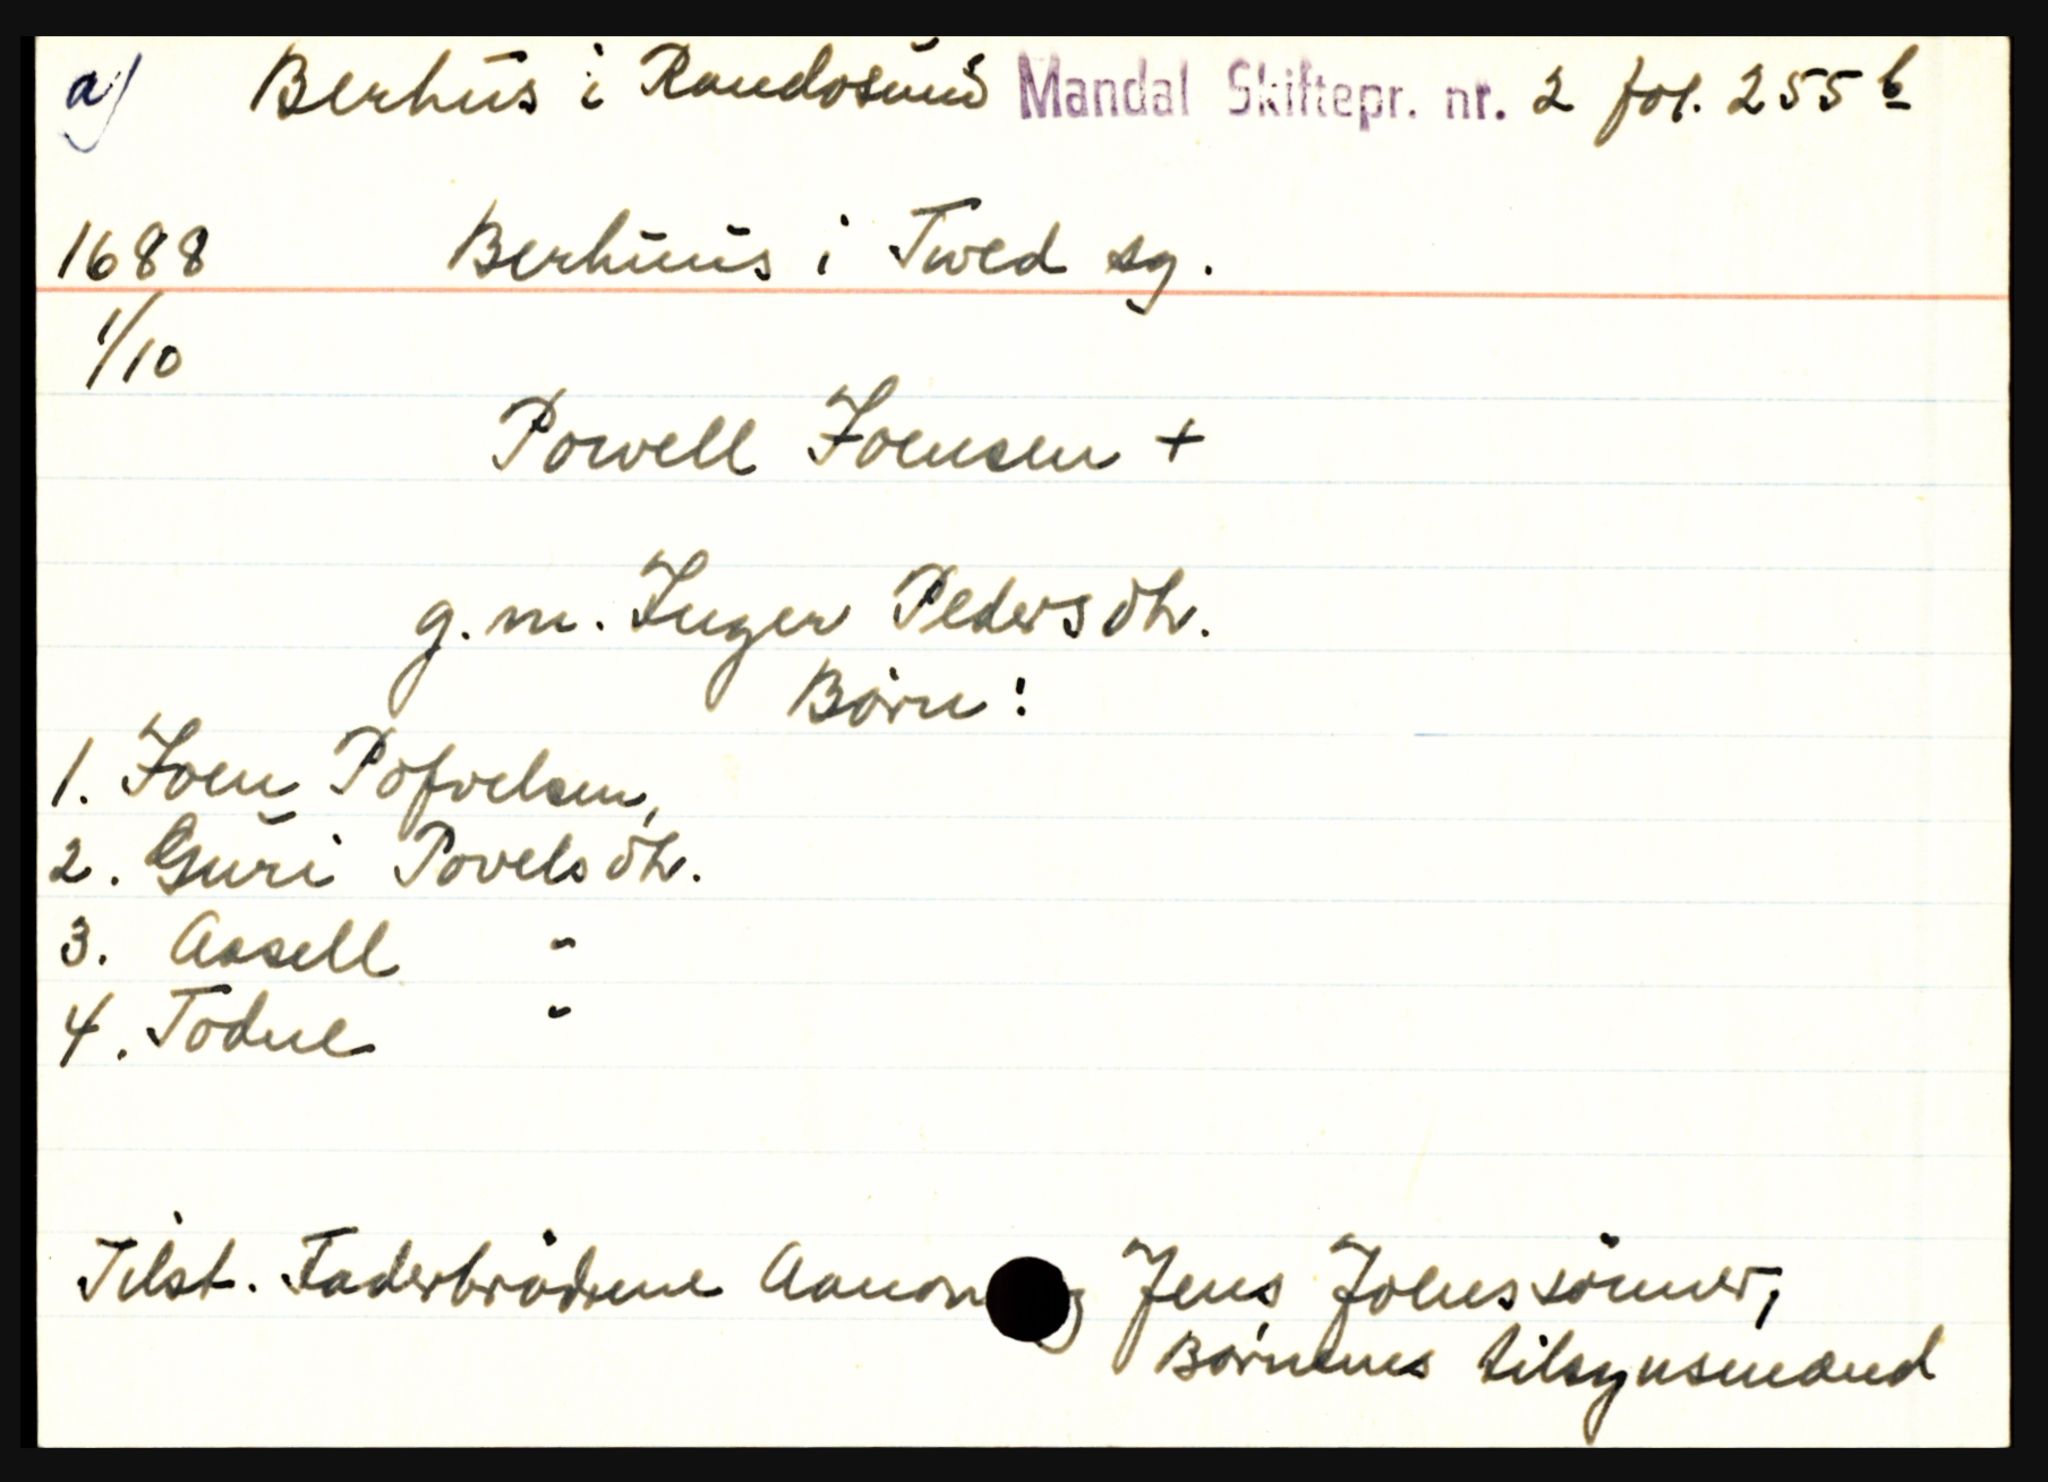 a) Berhus i Randosund Mandal Skiftepr. nr. 2 fol. 255 b
1688 Berhuus i Tved sg.
1/10
Powell Joensen +
g. m. Inger Pedersdtr.
Børn:
1. Joen Pofvelsen,
2. Guri Povelsdtr.
3. Assell "
4. Todne "
Tilst. Faderbrødrene Aanon Jens Joenssønner,
Børnenes tilsynsmænd